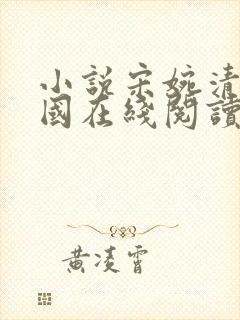 小說宋婉清
國在綫閱讀
黃凌霄